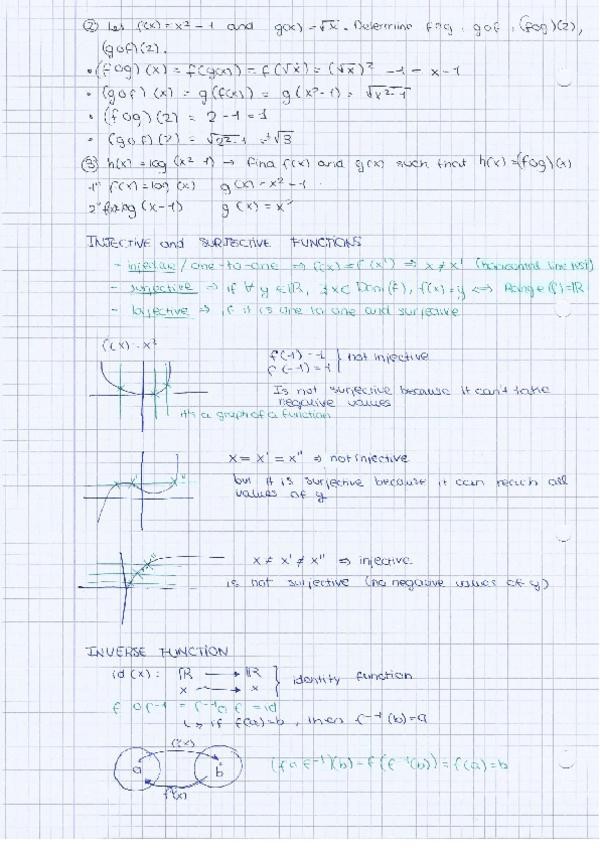 ② Let f(x) = x² - 1 and g(x) = √x. Determine f∘g, g∘f, (f∘g)(2),
(g∘f)(2).
• (f∘g)(x) = f(g(x)) = f(√x) = (√x)² - 1 = x - 1
• (g∘f)(x) = g(f(x)) = g(x²-1) = √x²-1
• (f∘g)(2) = 2 - 1 = 1
• (g∘f)(2) = √2²-1 = √3
③ h(x) = log(x²-1) → find f(x) and g(x) such that h(x) = (f∘g)(x)
1" f(x) = log(x) g(x) = x² - 1
2" f(x) = log(x-1) g(x) = x²
INJECTIVE and SURJECTIVE FUNCTIONS
- injective / one-to-one ⇒ f(x) = f(x') ⇒ x ≠ x' (horizontal line test)
- surjective ⇒ if ∀ y ∈ ℝ, ∃ x ∈ Dom(f), f(x) = y ⇔ Range(f) = ℝ
- bijective ⇒ if it is one to one and surjective
f(x) = x²
f(1) = 1
f(-1) = 1 } not injective
Is not surjective because it can't take
negative values
it's a graph of a function
x = x' = x'' ⇒ not injective
but it is surjective because it can reach all
values of y
x ≠ x' ≠ x'' ⇒ injective
is not surjective (no negative values of y)
INVERSE FUNCTION
id(x): ℝ → ℝ
x → x } identity function
f∘f⁻¹ = f⁻¹∘f = id
↳ if f(a) = b, then f⁻¹(b) = a
f(x)
a b (f∘f⁻¹)(b) = f(f⁻¹(b)) = f(a) = b
f⁻¹(x)